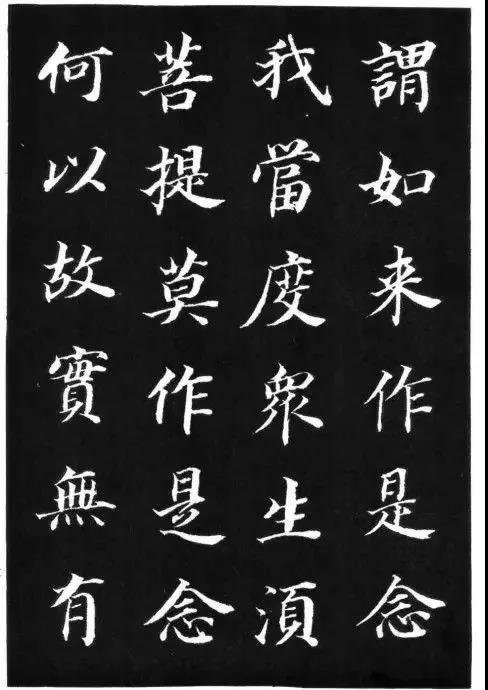 謂如来作是念
我當度衆生湏
菩提莫作是念
何以故實無有